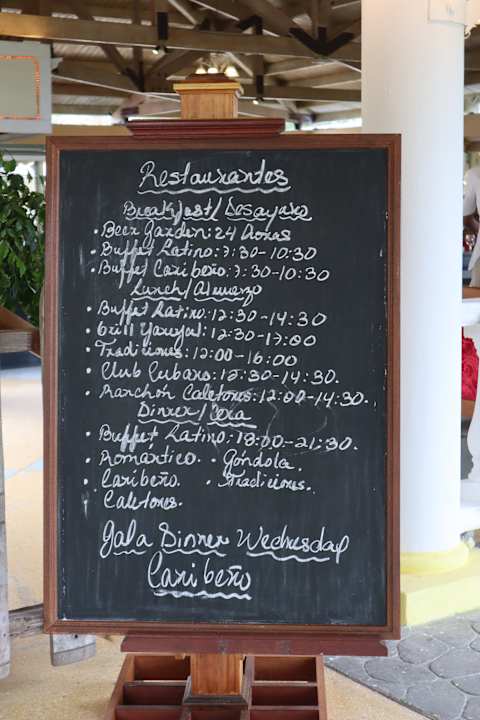 Restaurantes
Breakfast/Desayuno
• Beer Garden: 24 Horas
• Buffet Latino: 7:30-10:30
• Buffet Caribeño: 7:30-10:30
Lunch/Almuerzo
• Buffet Latino: 12:30-14:30
• Grill Yauyal: 12:30-17:00
• Tradiciones: 12:00-16:00
• Club Cubano: 12:30-14:30.
• Ranchón Caletones: 12:00-14:30.
Dinner/Cena
• Buffet Latino: 18:00-21:30.
• Romántico. • Góndola.
• Caribeño. • Tradiciones.
• Caletones.
Gala Dinner Wednesday
Caribeño